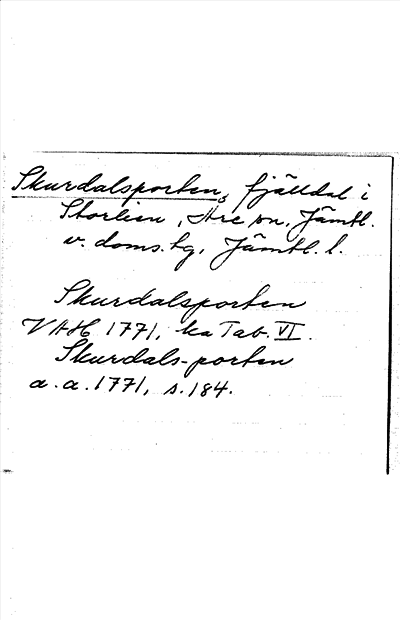 Skurdalsporten, fjälldal i
Storlien, Åre sn, Jämtl.
v. doms. tg, Jämtl. l.
Skurdalsporten
VAH 1771, ka Tab. VI.
Skurdals-porten
a. a. 1771, s. 184.